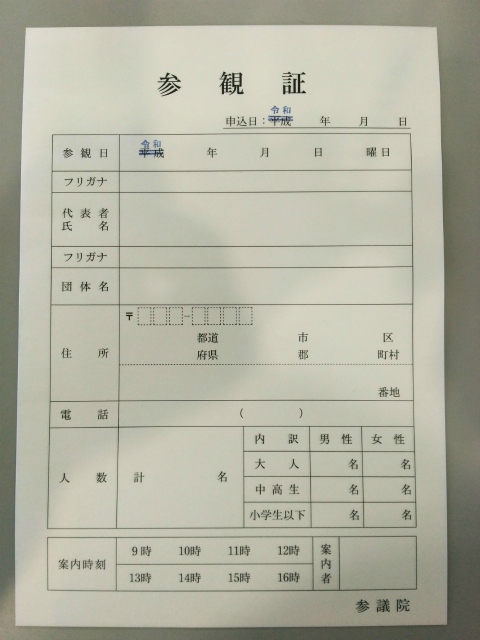 参観証
令和
申込日：平成 年 月 日
令和
参観日 平成 年 月 日 曜日
フリガナ
代表者
氏名
フリガナ
団体名
〒 -
都道 市 区
住所 府県 郡 町村
番地
電話 ( )
内訳 男性 女性
大人 名 名
人数 計 名
中高生 名 名
小学生以下 名 名
9時 10時 11時 12時
案内時刻 案内者
13時 14時 15時 16時
参議院